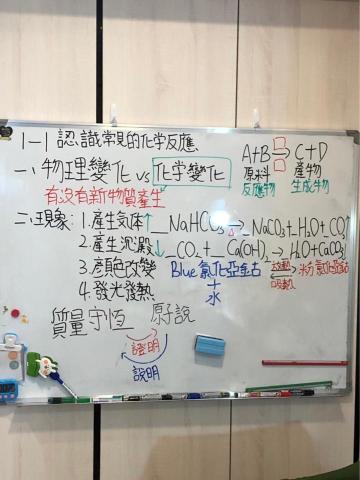 1-1 認識常見的化學反應
A+B → C+D
原料 產物
反應物 生成物
一、物理變化 vs 化學變化
有沒有新物質產生
二、現象：1.產生气体↑ __NaHCO₃ →△ __NaCO₃+H₂O+CO₂↑
2.產生沉澱↓ __CO₂+__Ca(OH)₂ → H₂O+CaCO₃↓
3.顏色改變 Blue 氯化亞鈷 放熱 吸熱 粉 氯化亞鈷
+
水
4.發光發熱
質量守恆 原子說
證明
說明